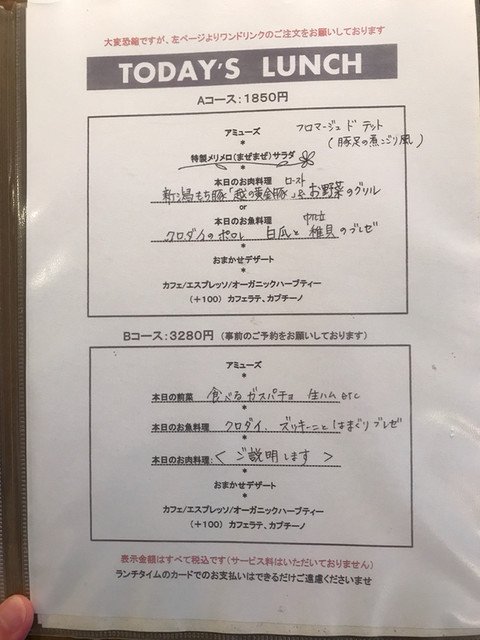 大変恐縮ですが、左ページよりワンドリンクのご注文をお願いしております
TODAY'S LUNCH
Aコース:1850円
アミューズ フロマージュ ド テット
(豚足の煮こごり風)
*
特製メリメロ(まぜまぜ)サラダ
*
本日のお肉料理 ロースト
新潟もち豚「越の黄金豚」と お野菜のグリル
or
本日のお魚料理
クロダイのポワレ 白瓜と 稚貝のブレゼ
*
おまかせデザート
*
カフェ/エスプレッソ/オーガニックハーブティー
(+100) カフェラテ、カプチーノ
Bコース:3280円 (事前のご予約をお願いしております)
アミューズ
*
本日の前菜 食べるガスパチョ 生ハム etc
*
本日のお魚料理 クロダイ、ズッキーニとはまぐりブレゼ
*
本日のお肉料理: < ご説明します >
*
おまかせデザート
*
カフェ/エスプレッソ/オーガニックハーブティー
(+100) カフェラテ、カプチーノ
表示金額はすべて税込です(サービス料はいただいておりません)
ランチタイムのカードでのお支払いはできるだけご遠慮くださいませ